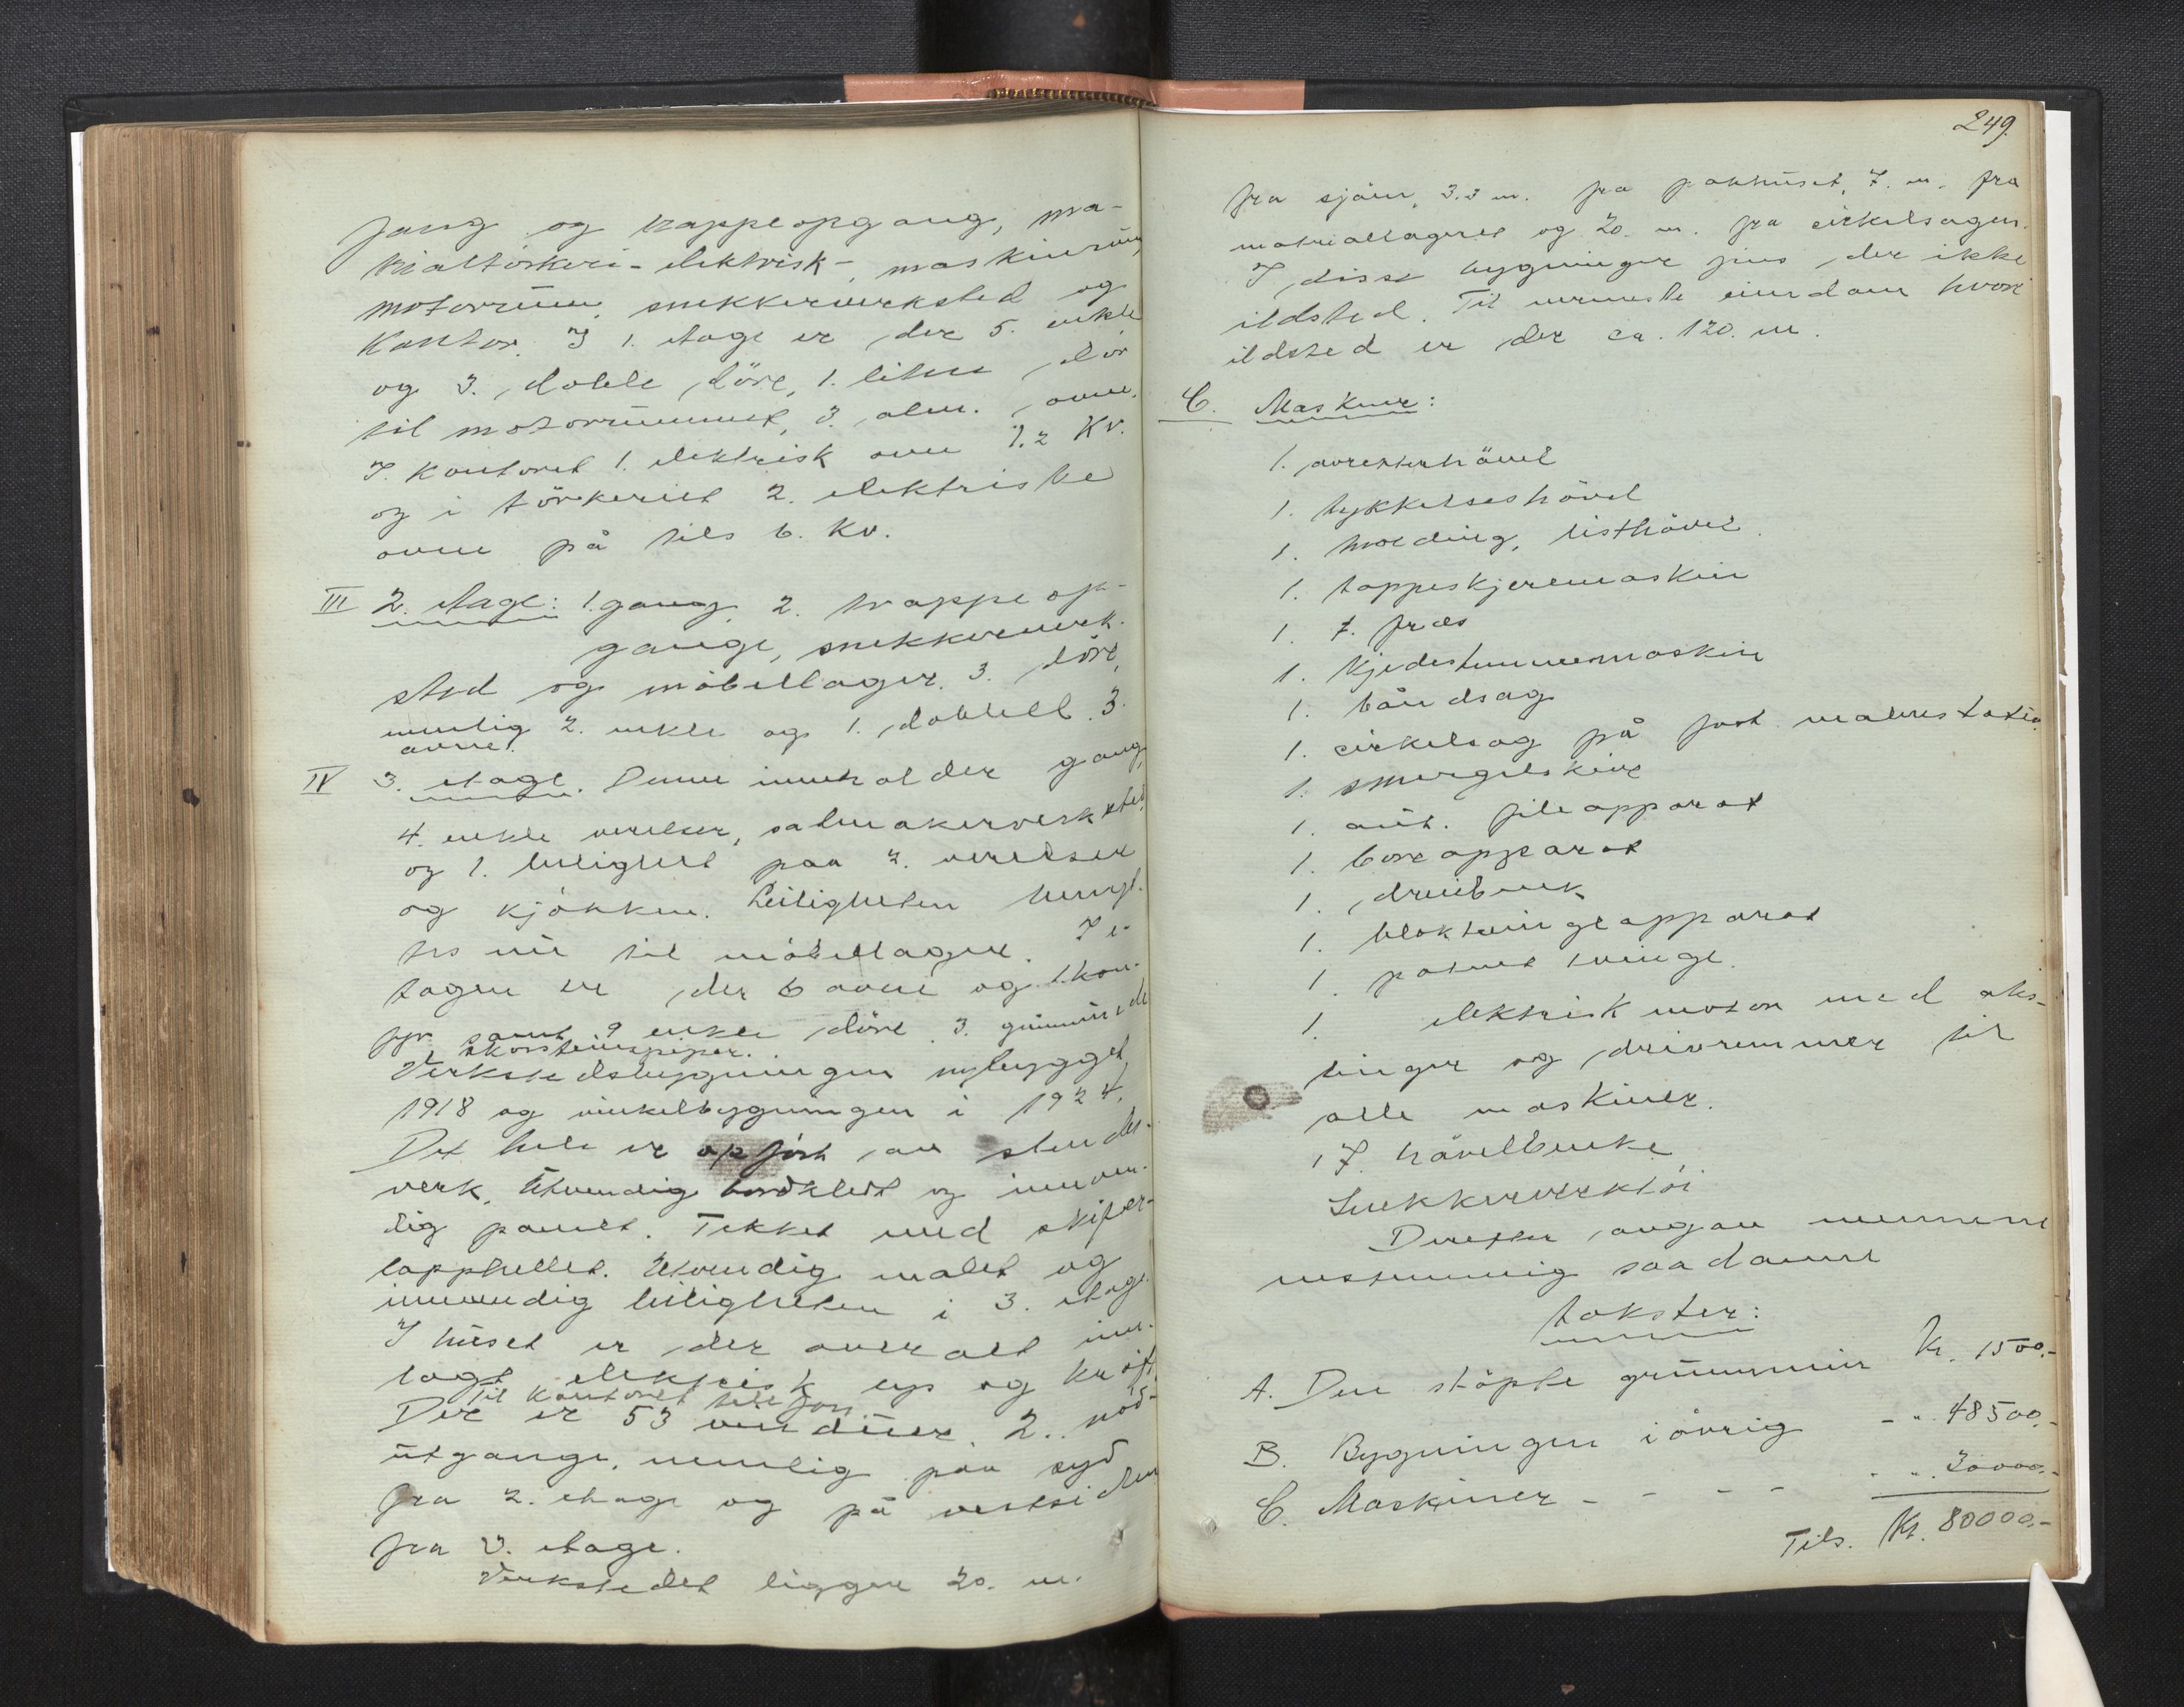 gang og trappeopgang, ma-
trialtörkeri - elektrisk -, maskinrum,
motorrum, snekkerverksted og
Kontor. I 1. etage er der 5. enkle
og 3. doble döre, 1. liten dör
til motorrummet, 3. alm. ovne.
I kontoret 1. elektrisk ovn 1.2 Kv.
og i törkeriet 2. elektriske
ovne på tils 6. Kv.
III 2. etage: 1. gang, 2. trappeop-
gange, snekkerverk-
sted og möbellager. 3. döre,
nemlig 2. enkle og 1. dobbelt. 3.
ovne.
IV 3. etage. Denne inneholder gang,
4. enkle verelser, salmakerverksted
og 1. leilighet paa 2. verelser
og kjökken. Leiligheten benyt-
tes nu til möbellager. I e-
tagen er der 6 ovne og 1. kom-
fyr samt 9 enkle döre 3. grunnmurede
skorsteinspiper.
Verkstedsbygningen nybygget
1918 og vinkelbygningen i 1924.
Det hele er opfört av stender-
verk. Utvendig bordkledt og innven-
dig panelt. Tekket med skifer-
lapphellet. Utvendig malet og
innvendig leiligheten i 3. etage.
I huset er der overalt inn-
lagt elektrisk lys og kraft,
Til Kontoret telefon
Der er 53 vinduer. 2. nöd-
utgange, nemlig paa syd
fra 2. etage og på vestsiden
fra 3. etage.
Verkstedet ligger 20. m.
249.
fra sjöen, 3.3 m. fra pakhuset, 7. m. fra
matriallageret og 20. m. fra cirkelsagen.
I disse bygninger fins der ikke
ildsted. Til nermeste eiendom hvori
ildsted er der ca. 120. m.
C. Maskiner:
1. avretterhövel
1. tykkelseshövel
1. molding, listhövel.
1. tappeskjeremaskin
1. f. fræs
1. Kjedestemmemaskin
1. båndsag
1. cirkelsag på fast
1. smergelskive
1. aut. fileapparat
1. boreapparat
1. dreiebenk
1. bloktvingeapparat
1. patent tvinge.
1. elektrisk motor med aks-
linger og drivremmer til
alle maskiner.
17. hövelbenke
Snekkerverktöi
Derefter avgav mennene
enstemmig saadanne
takster:
A. Den stöpte grunnmur Kr. 1500.-
B. Bygningen i övrig - " 48500.-
C. Maskiner - - - - - " 30000.-
Tils. Kr. 80000.-